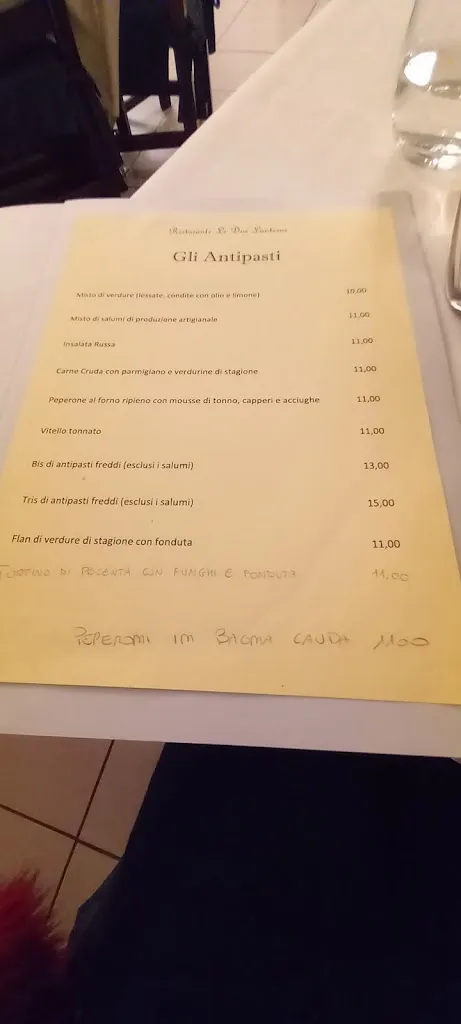 Ristorante Le Due Lanterne
Gli Antipasti
Misto di verdure (lessate, condite con olio e limone) 10,00
Misto di salumi di produzione artigianale 11,00
Insalata Russa 11,00
Carne Cruda con parmigiano e verdurine di stagione 11,00
Peperone al forno ripieno con mousse di tonno, capperi e acciughe 11,00
Vitello tonnato 11,00
Bis di antipasti freddi (esclusi i salumi) 13,00
Tris di antipasti freddi (esclusi i salumi) 15,00
Flan di verdure di stagione con fonduta 11,00
TORTINO DI POLENTA CON FUNGHI E FONDUTA 11,00
PEPERONI IN BAGNA CAUDA 1100